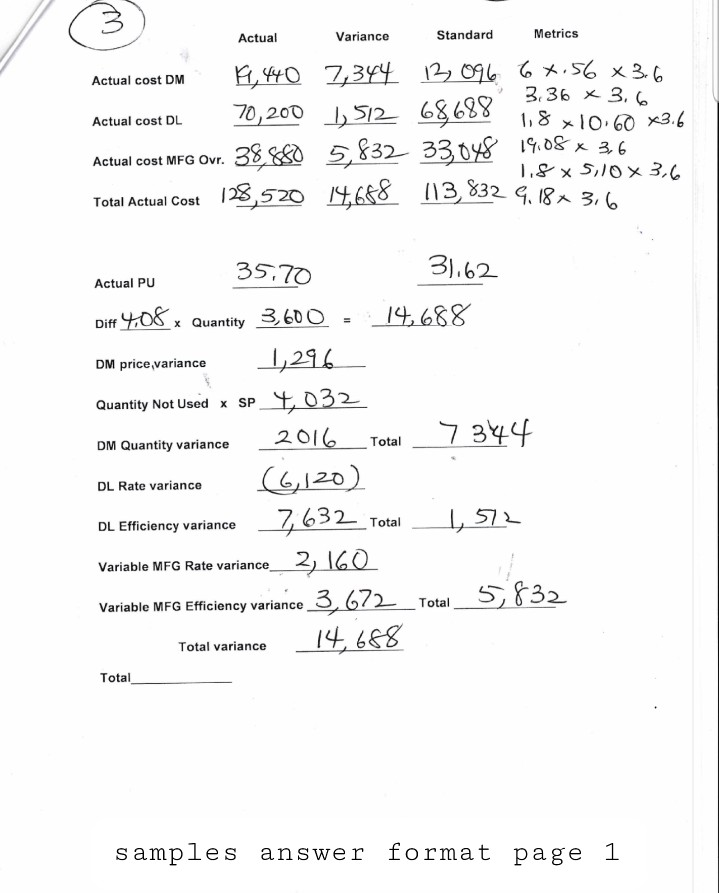 3
Actual Variance Standard Metrics
Actual cost DM 19,440 7,344 12,096 6 x .56 x 3.6
3.36 x 3.6
Actual cost DL 70,200 1,512 68,688 1.8 x 10.60 x 3.6
19.08 x 3.6
Actual cost MFG Ovr. 38,880 5,832 33,048 1.8 x 5.10 x 3.6
Total Actual Cost 128,520 14,688 113,832 9.18 x 3.6
Actual PU 35.70 31.62
Diff 4.08 x Quantity 3,600 = 14,688
DM price,variance 1,296
Quantity Not Used x SP 4,032
DM Quantity variance 2016 Total 7344
DL Rate variance (6,120)
DL Efficiency variance 7,632 Total 1,512
Variable MFG Rate variance 2,160
Variable MFG Efficiency variance 3,672 Total 5,832
Total variance 14,688
Total
samples answer format page 1